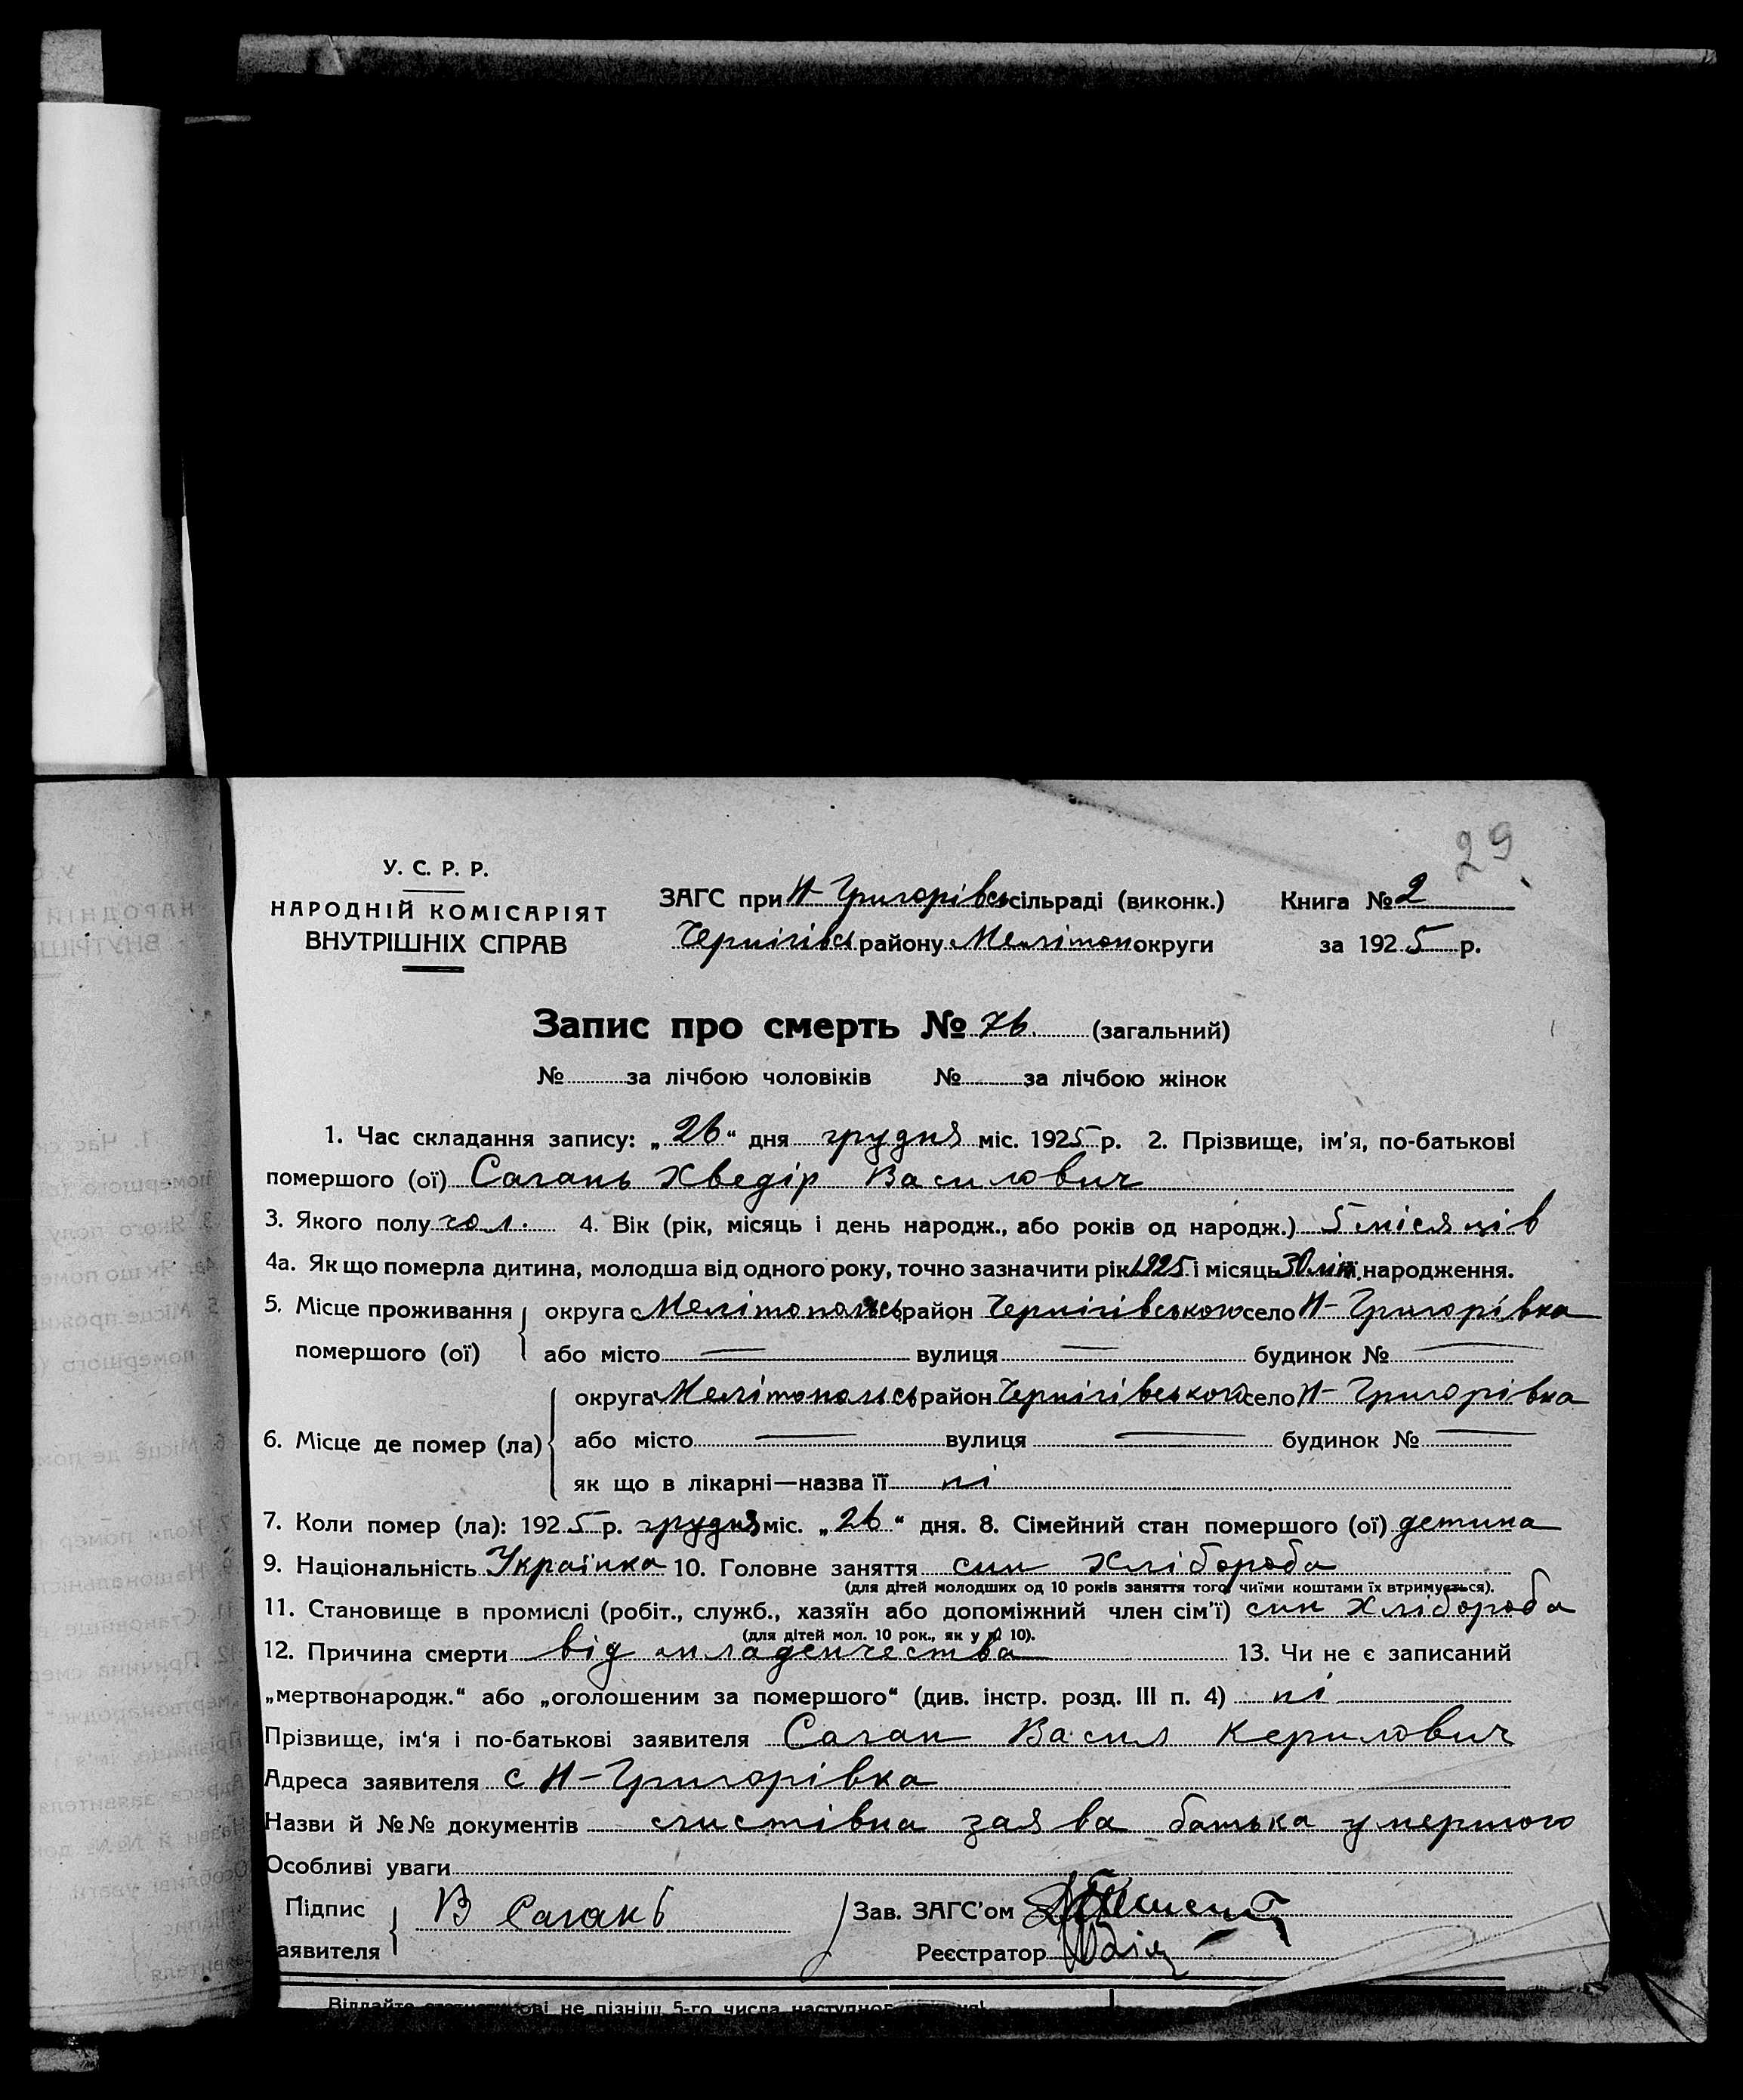 29
У. С. Р. Р.
НАРОДНІЙ КОМІСАРІЯТ
ВНУТРІШНІХ СПРАВ
ЗАГС при Н-Григорівсь сільраді (виконк.) Книга № 2
Чернігівсь району Мелітоп округи за 1925 р.
Запис про смерть № 76. (загальний)
№ за лічбою чоловіків № за лічбою жінок
1. Час складання запису: „26“ дня грудня міс. 1925 р. 2. Прізвище, ім'я, по-батькові
помершого (ої) Сагань Хведір Василович
3. Якого полу чол. 4. Вік (рік, місяць і день народж., або років од народж.) 5 місяців
4а. Як що померла дитина, молодша від одного року, точно зазначити рік 1925 і місяць 30 народження.
5. Місце проживання округа Мелітопольсь район Чернігівського село Н-Григорівка
помершого (ої) або місто — вулиця — будинок № —
округа Мелітопольсь район Чернігівського село Н-Григорівка
6. Місце де помер (ла) або місто — вулиця — будинок № —
як що в лікарні—назва її ні
7. Коли помер (ла): 1925 р. грудня міс. „26“ дня. 8. Сімейний стан помершого (ої) детина
9. Національність Українка 10. Головне заняття син Хлібороба
(для дітей молодших од 10 років заняття того, чиїми коштами їх втримується).
11. Становище в промислі (робіт., служб., хазяїн або допоміжний член сім'ї) син Хлібороба
(для дітей мол. 10 рок., як у п. 10).
12. Причина смерти від младенчества 13. Чи не є записаний
„мертвонародж.“ або „оголошеним за помершого“ (див. інстр. розд. III п. 4) ні
Прізвище, ім'я і по-батькові заявителя Саган Васил Керилович
Адреса заявителя с Н-Григорівка
Назви й №№ документів заява батька умершого
Особливі уваги
Підпис В Сагань Зав. ЗАГС'ом
аявителя Реєстратор
Віддайте не пізніш 5-го числа